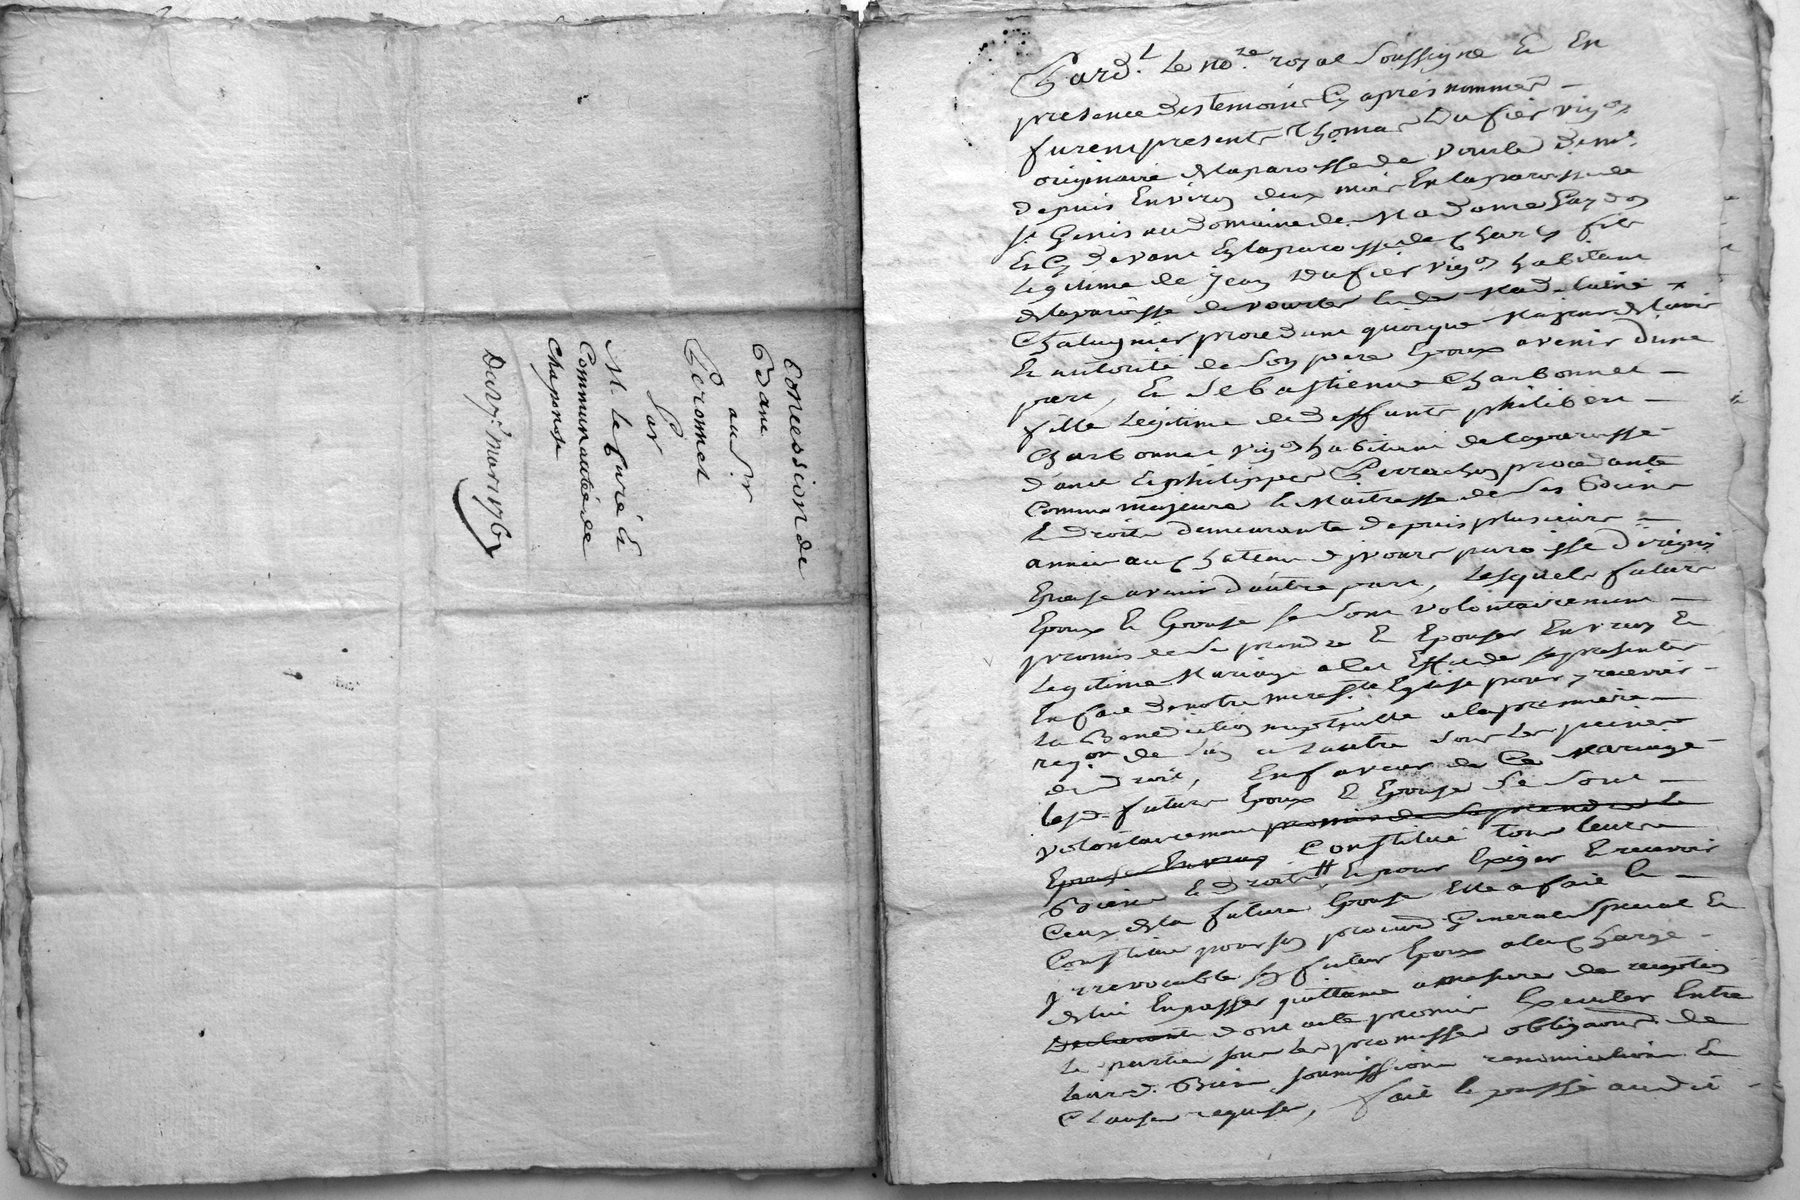 Concession de
Banc
au Sr
Peronnet
Par
Mr. le Curé &
Communauté de
Chaponost
Du 7e mars 1767
Pard.t le no.re royal soussigné & En
presence des temoins Cy apres nommés
furent presents Thomas Dufier vig.on
originaire de la paroisse de Vourle dem.t
depuis Environ deux mois En la paroisse de
St Genis au domaine de Madame
& Cy devant En la paroisse de Charly fils
Legitime de Jean Dufier vig.on habitant
de la paroisse de Vourles & de Madelaine
Chatugnier procedant quoique Majeur de l'avis
& autorité de son pere Epoux avenir d'une
part, & Sebastienne Charbonnet
fille Legitime de deffunts philibert
Charbonnet vig.on habitant de la paroisse
& philippes procedante
Comme majeure & Maitresse de ses Biens
& droits demeurante depuis plusieurs
année au Chateau paroisse d'irigni
Epouse avenir d'autre part, Lesquels futurs
Epoux & Epouse se sont volontairement
promis de se prendre & Epouser En vray &
Legitime Mariage a Cet Effet de se presenter
En face de notre mere Ste Eglise pour y recevoir
La Benediction nuptialle a la premiere
req.on de L'un a L'autre sous les peines
de droit, En faveur de Ce Mariage
lesd. futurs Epoux & Epouse se sont
volontairement promis de se prendre &
Epouser En vray Constitué tous leurs
Biens & droits & pour Exiger & recevoir
Ceux de la future Epouse Elle a fait &
Constitué pour son procur. General special &
irrevocable led. futur Epoux a la Charge
de lui En passer quittance a mesure de reception
Declarants dont acte promis Executer Entre
Le parties sous les promesses obligaons de
leurs d. Biens soumissions renonciations &
Clauses requises, fait & passé aud.